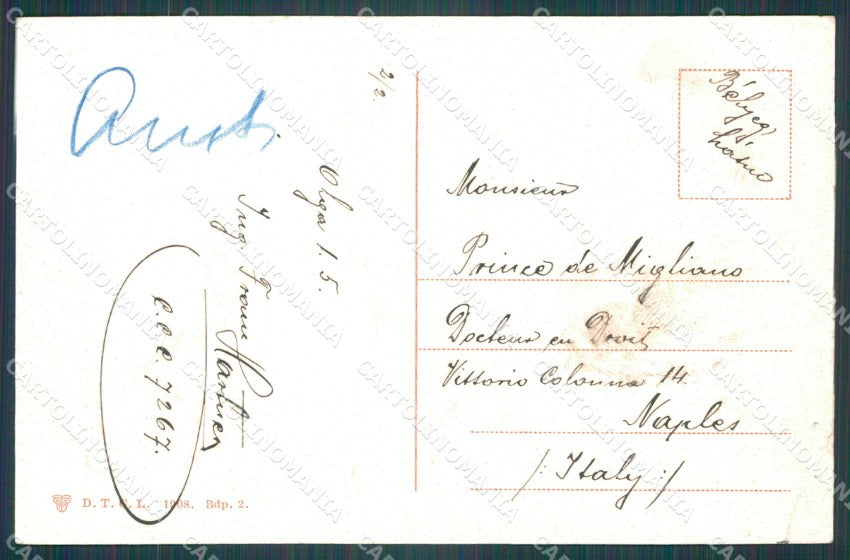 Austr.
2/2.
Olga 1. 5.
Ing. Fram
C.C.C. 7267.
D. T. C. L. 1908. Bdp. 2.
Bélyeg
hátul
Monsieur
Prince de Migliano
Docteur en Droit
Vittorio Colonna 14.
Naples
/: Italy :/
CARTOLINOMANIA